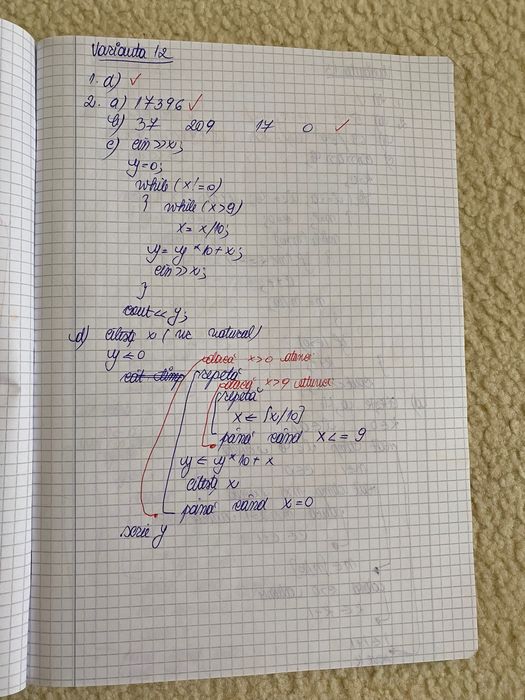 Varianta 12
1. d) ✓
2. a) 17396 ✓
b) 37 209 17 0 ✓
c) cin>>x;
y=0;
while(x!=0)
{ while(x>9)
x=x/10;
y=y*10+x;
cin>>x;
}
cout<<y;
d) citește x (nr natural)
y←0
dacă x>0 atunci
cât timp repetă
dacă x>9 atunci
repetă
x←[x/10]
până când x<=9
y←y*10+x
citește x
până când x=0
scrie y